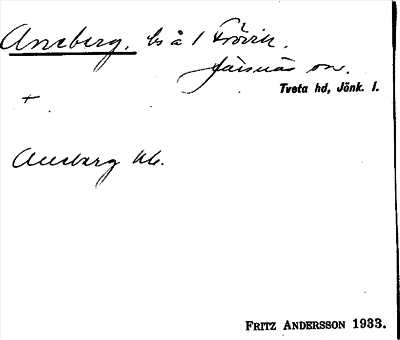 Aneberg, bs å 1 Frövik.
Järsnäs sn.
Tveta hd, Jönk. l.
+
Aneberg
FRITZ ANDERSSON 1933.